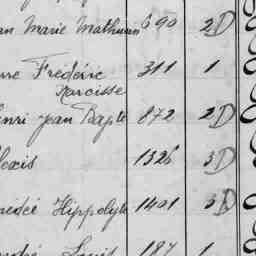 an Marie Mathurin 690 2D
rre Frédéric 311 1
Narcisse
enri Jean Bapte 872 2D
lexis 1326 3D
médée Hippolyte 1401 3D
Louis 187 1